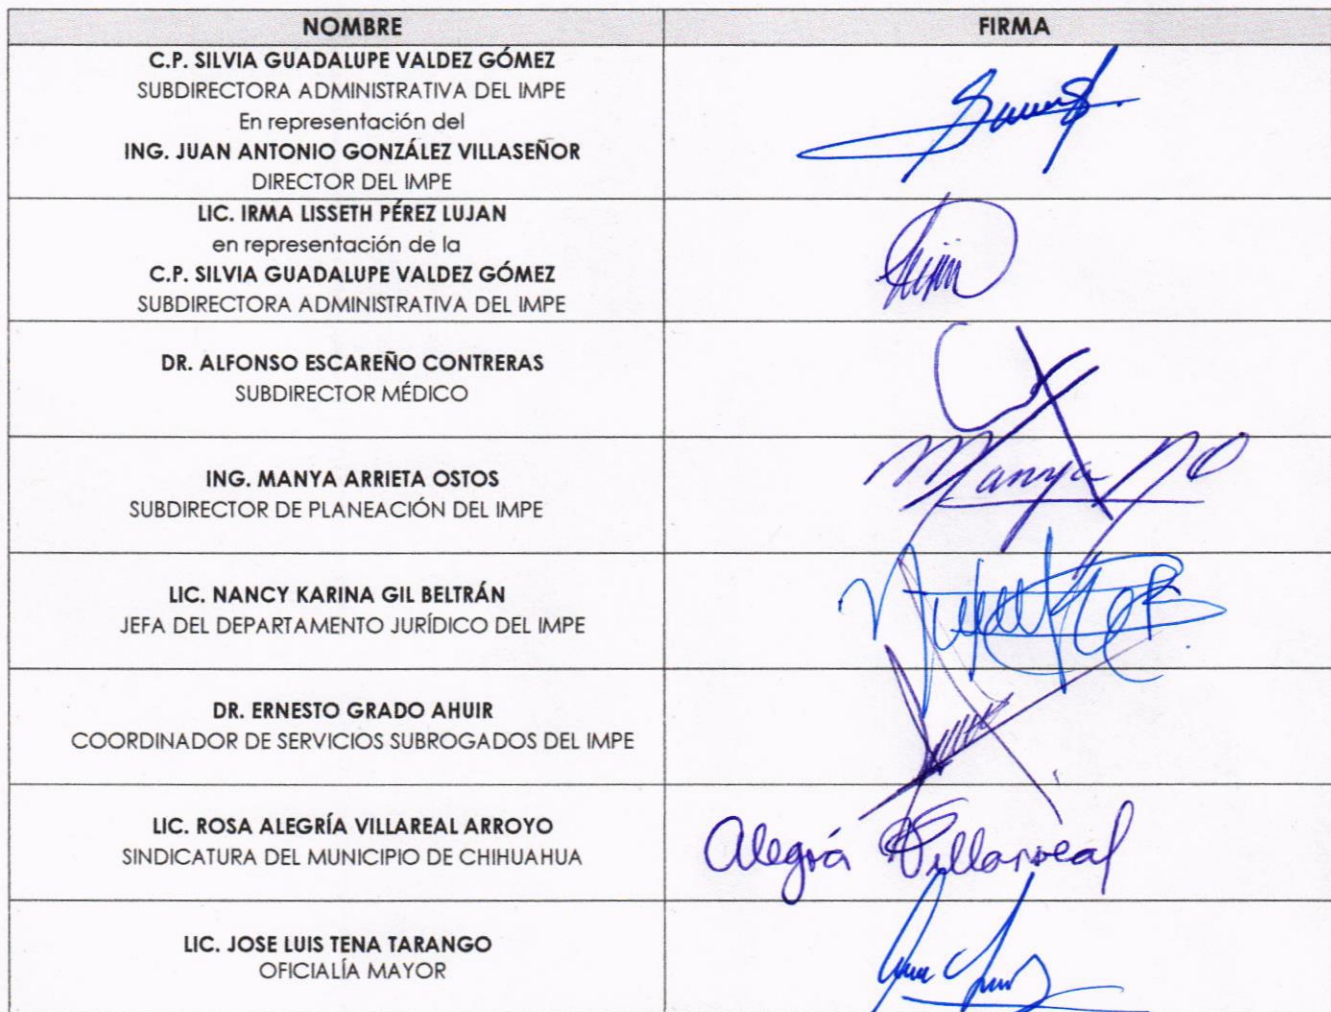 NOMBRE FIRMA
C.P. SILVIA GUADALUPE VALDEZ GÓMEZ
SUBDIRECTORA ADMINISTRATIVA DEL IMPE
En representación del
ING. JUAN ANTONIO GONZÁLEZ VILLASEÑOR
DIRECTOR DEL IMPE
LIC. IRMA LISSETH PÉREZ LUJAN
en representación de la
C.P. SILVIA GUADALUPE VALDEZ GÓMEZ
SUBDIRECTORA ADMINISTRATIVA DEL IMPE
DR. ALFONSO ESCAREÑO CONTRERAS
SUBDIRECTOR MÉDICO
ING. MANYA ARRIETA OSTOS
SUBDIRECTOR DE PLANEACIÓN DEL IMPE
Manya
LIC. NANCY KARINA GIL BELTRÁN
JEFA DEL DEPARTAMENTO JURÍDICO DEL IMPE
DR. ERNESTO GRADO AHUIR
COORDINADOR DE SERVICIOS SUBROGADOS DEL IMPE
LIC. ROSA ALEGRÍA VILLAREAL ARROYO
SINDICATURA DEL MUNICIPIO DE CHIHUAHUA
Alegría Villarreal
LIC. JOSE LUIS TENA TARANGO
OFICIALÍA MAYOR